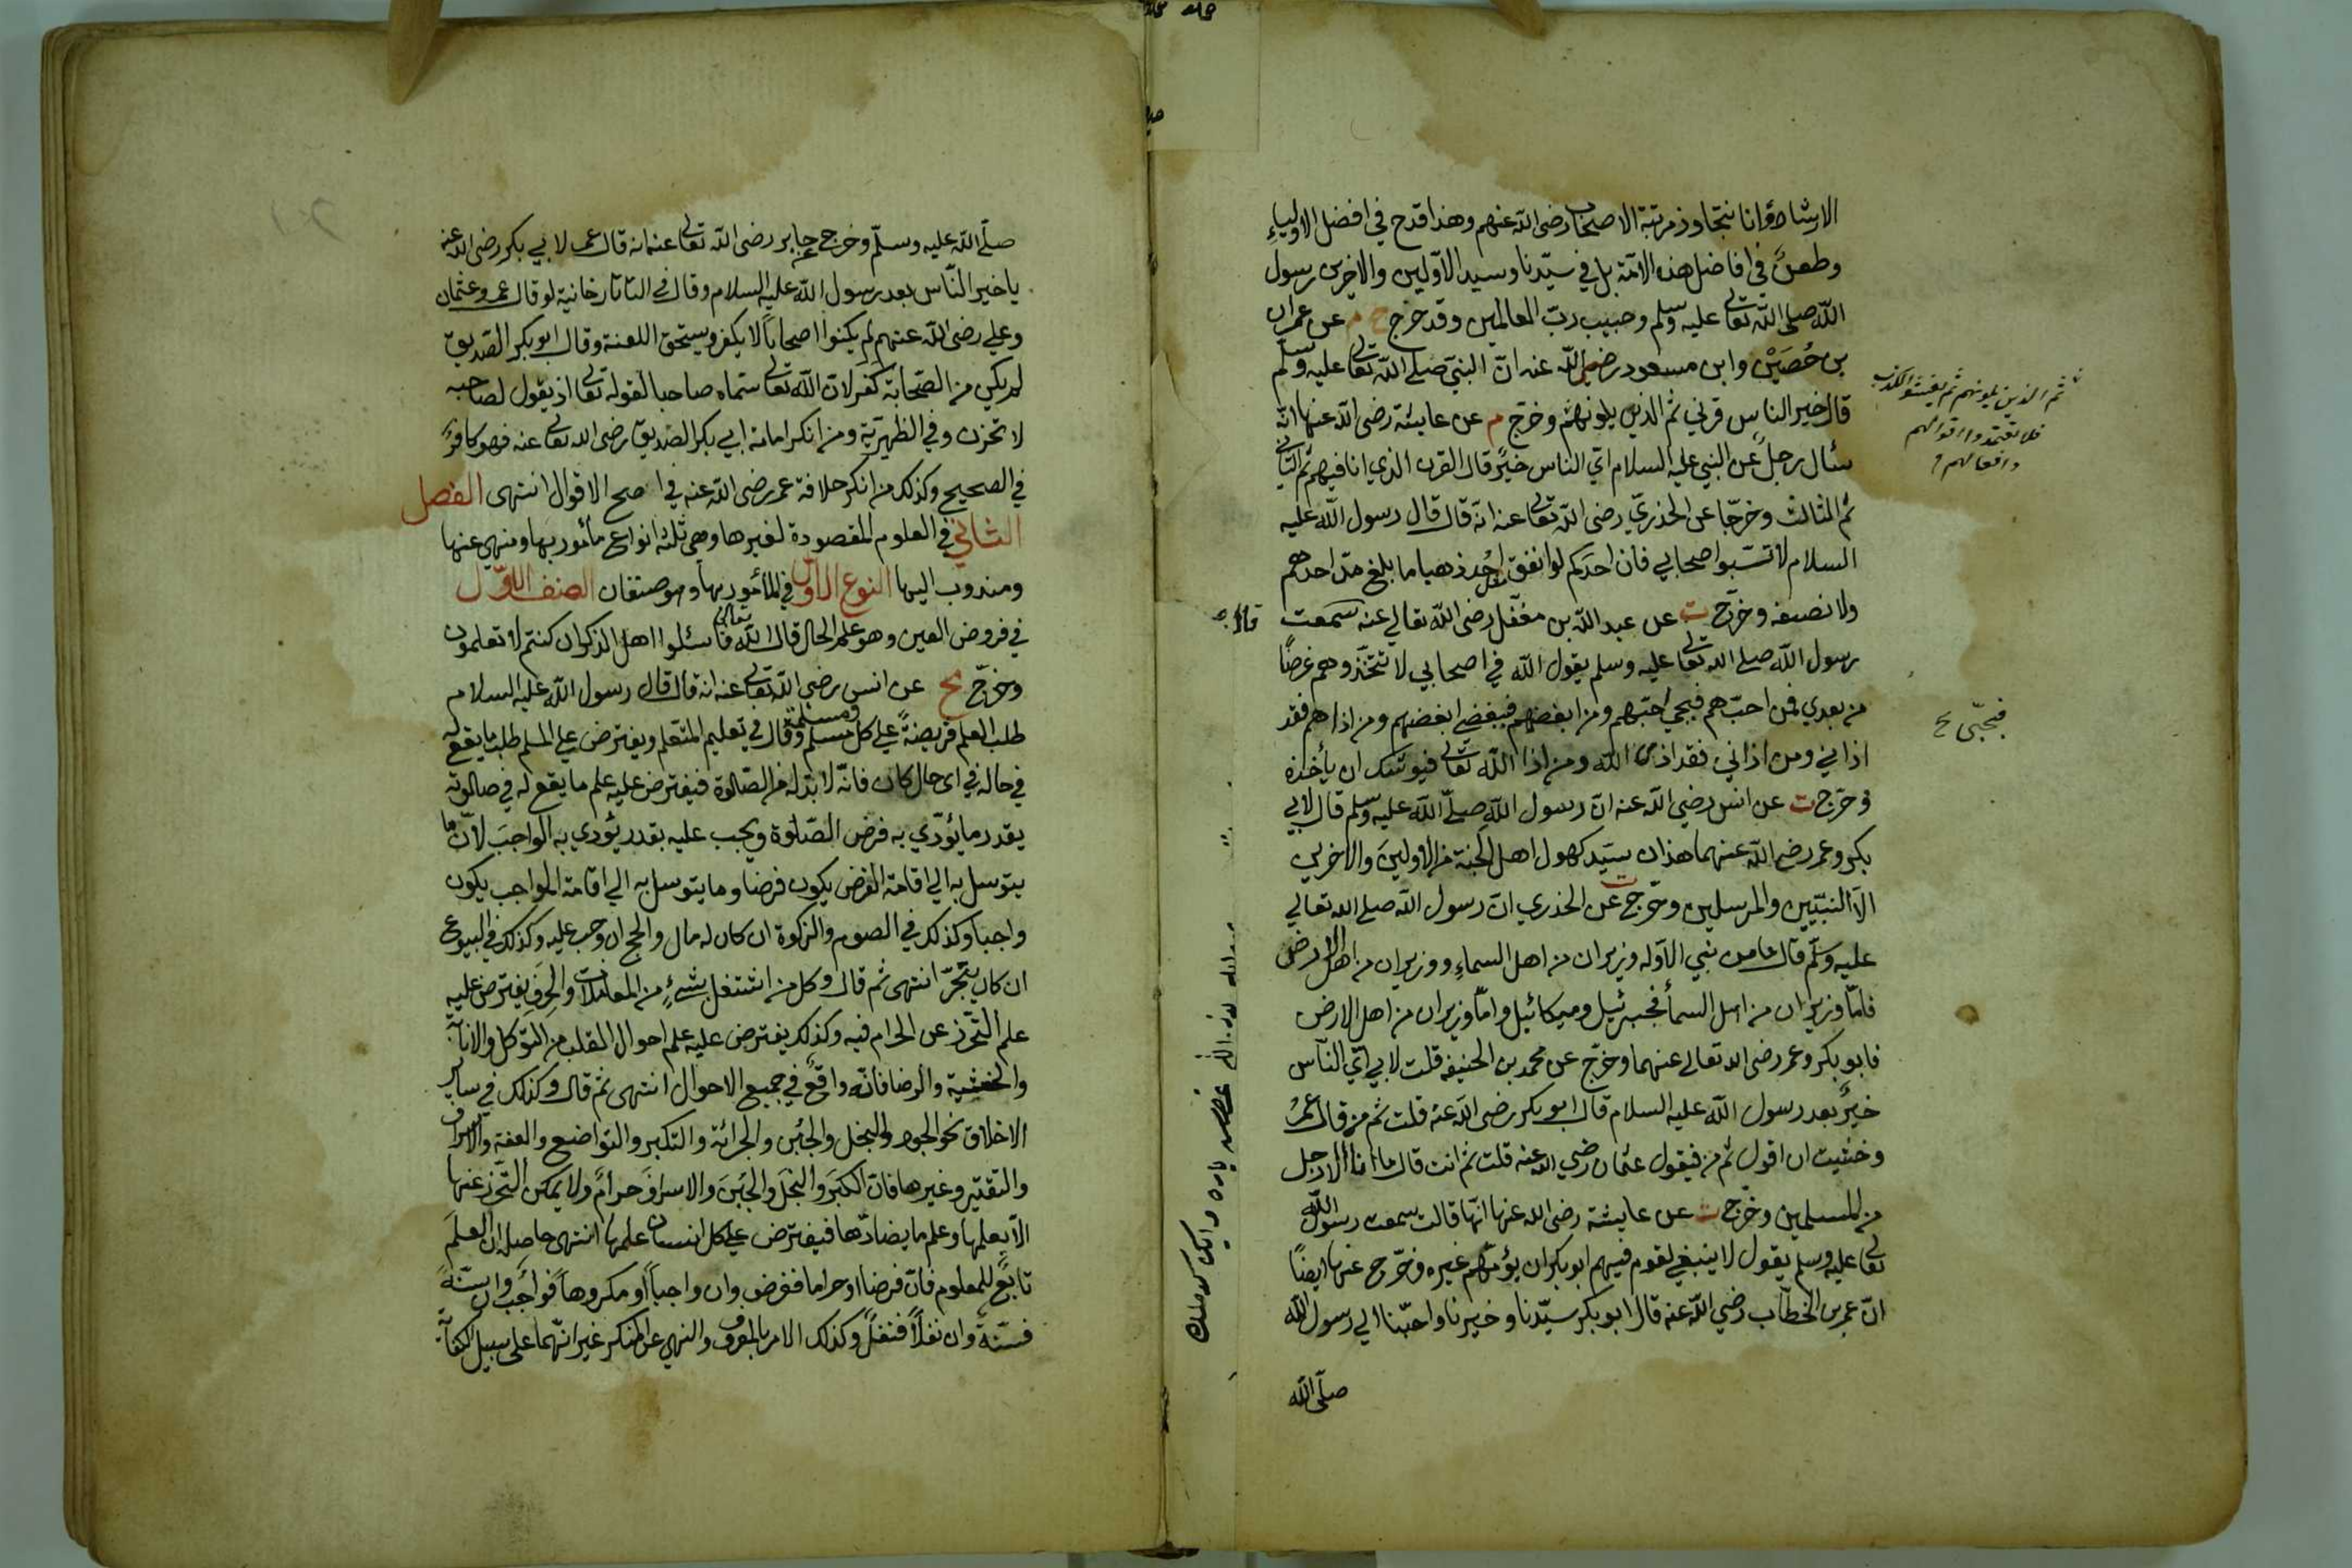 الارشاد وانا نتجاوز مرتبة الاصحاب رضى الله عنهم وهذا قدح في افضل الاولياء
وطعن في افاضل هذه الامة بل في سيدنا وسيد الاولين والاخرين رسول
الله صلى الله تعالى عليه وسلم وحبيب رب العالمين وقد خرج خ م عن عمران
بن حُصَيْن وابن مسعود رضى الله عنه ان النبي صلى الله تعالى عليه وسلم
قال خير الناس قرني ثم الذين يلونهم وخرج م عن عايشة رضى الله عنها انه
سئال رجل عن النبي عليه السلام اي الناس خير قال القرن الذي انا فيهم ثم الثاني
ثم الثالث وخرّجا عن الخذري رضى الله تعالى عنه انه قال قال رسول الله عليه
السلام لا تسبوا اصحابي فان احدكم لو انفق مثل اُحُد ذهبا ما بلغ مدّ احدهم
ولا نصفه وخرّج ت عن عبد الله بن مغفل رضى الله تعالي عنه سمعت
رسول الله صلى الله تعالى عليه وسلم يقول الله في اصحابي لا تتخذوهم غرضًا
من بعدي فمن احبهم فبحبي احبهم ومن ابغضهم فببغضي ابغضهم ومن اذاهم فقد
اذاني ومن اذاني فقد اذى الله ومن اذا الله تعالى فيوشك ان يأخذه
وخرّج ت عن انس رضي الله عنه ان رسول الله صلى الله عليه وسلم قال لابي
بكر وعمر رضى الله عنهما هذان سيد كهول اهل الجنة من الاولين والاخرين
الا النبيين والمرسلين وخرج ت عن الخذري ان رسول الله صلى الله تعالي
عليه وسلم قال ما من نبي الا وله وزيران من اهل السماء ووزيران من اهل الارض
فاما وزيران من اهل السمأ فجبرئيل وميكائيل واما وزيران من اهل الارض
فابو بكر وعمر رضى الله تعالى عنهما وخرّج عن محمد بن الحنيفه قلت لابي اي الناس
خير بعد رسول الله عليه السلام قال ابو بكر رضى الله عنه قلت ثم من قال عمر
وخشيت ان اقول ثم من فيقول عثمان رضي الله عنه قلت ثم انت قال ما انا الا رجل
من المسلمين وخرّج ت عن عايشة رضى الله عنها انها قالت سمعت رسول الله
تعالى عليه وسلم يقول لا ينبغي لقوم فيهم ابو بكر ان يؤمهم غيره وخرّج عنها ايضًا
ان عمر بن الخطاب رضي الله عنه قال ابو بكر سيدنا وخيرنا واحبنا الي رسول الله
صلى الله
ثم الذين يلونهم ثم يفشوا الكذب
فلا تعتمدوا اقوالهم
وافعالهم
فبحبّي
صلى الله عليه وسلم وخرج عن جابر رضى الله تعالى عنه انه قال عمر لابي بكر رضى الله عنه
يا خير الناس بعد رسول الله عليه السلام وقال في التاتارخانية لو قال عمر وعثمان
وعلي رضى الله عنهم لم يكنوا اصحابًا لا يكفر ويستحق اللعنة وقال ابو بكر الصديق
لم يكن من الصحابة كفر لان الله تعالى سماه صاحبا لقوله تعالى اذ يقول لصاحبه
لا تحزن وفي الظهيرية ومن انكر امامة ابي بكر الصديق رضى الله تعالى عنه فهو كافر
في الصحيح وكذلك من انكر خلافة عمر رضى الله عنه في اصح الاقوال انتهى الفصل
الثاني في العلوم المقصودة لغيرها وهى ثلثة انواع مأمور بها ومنهي عنها
ومندوب اليها النوع الاول في المأمور بها وهو صنفان الصنف الاول
في فروض العين وهو علم الحال قال الله تعالى فاسئلوا اهل الذكر ان كنتم لا تعلمون
وخرّج مج عن انس رضي الله تعالى عنه انه قال قال رسول الله عليه السلام
طلب العلم فريضة على كل مسلم ومسلمة وقال في تعليم المتعلم ويفترض على المسلم طلب ما يقع له
في حاله في اى حال كان فانه لا بد له من الصلاة فيفترض عليه علم ما يقع له في صلاوته
بقدر ما يؤدي به فرض الصلوة ويجب عليه بقدر يؤدي به الواجب لان ما
يتوسل به الي اقامة الفرض يكون فرضا وما يتوسل به الي اقامة الواجب يكون
واجبا وكذلك في الصوم والزكوة ان كان له مال والحج ان وجب عليه وكذلك في البيوع
ان كان يتجر انتهى ثم قال وكل من اشتغل بشيء من المعاملات والحرف يفترض عليه
علم التحرز عن الحرام فيه وكذلك يفترض عليه علم احوال القلب من التوكل والانابة
والخشية والرضا فانه واقع في جميع الاحوال انتهى ثم قال وكذلك في سائر
الاخلاق نحو الجود والبخل والجبن والجرائة والتكبر والتواضع والعفة والاسراف
والتقتير وغيرها فان الكبر والبخل والجبن والاسراف حرام ولا يمكن التحرز عنها
الا بعلمها وعلم ما يضادها فيفترض على كل انسان علمها انتهى حاصله ان العلم
تابع للمعلوم فان فرضا او حراما ففرض وان واجبا او مكروها فواجب وان سنة
فسنة وان نفلا فنفل وكذلك الامر بالمعروف والنهي عن المنكر غير انهما على سبيل الكفاية